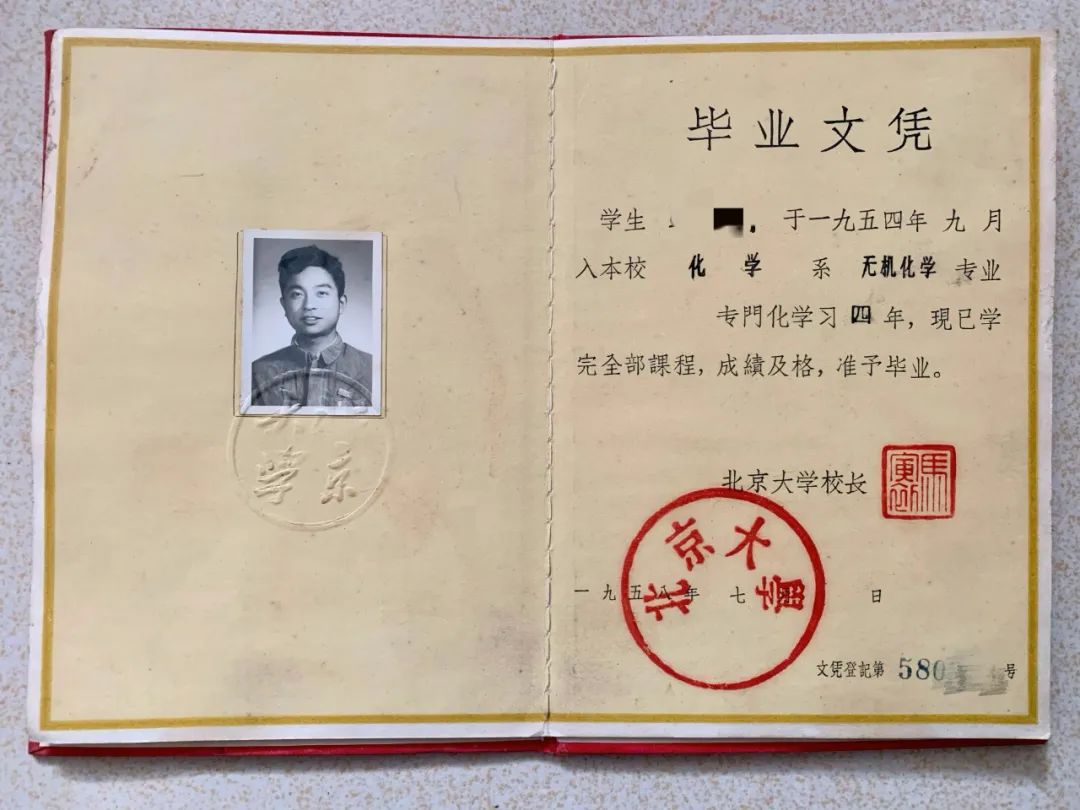 毕业文凭
学生 于一九五四年九月
入本校 化学 系 无机化学 专业
专門化学习四年，现已学
完全部課程，成績及格，准予毕业。
北京大学校长
馬寅初
北京大學
一九五八年七 日
文凭登記第 580 号
京
學